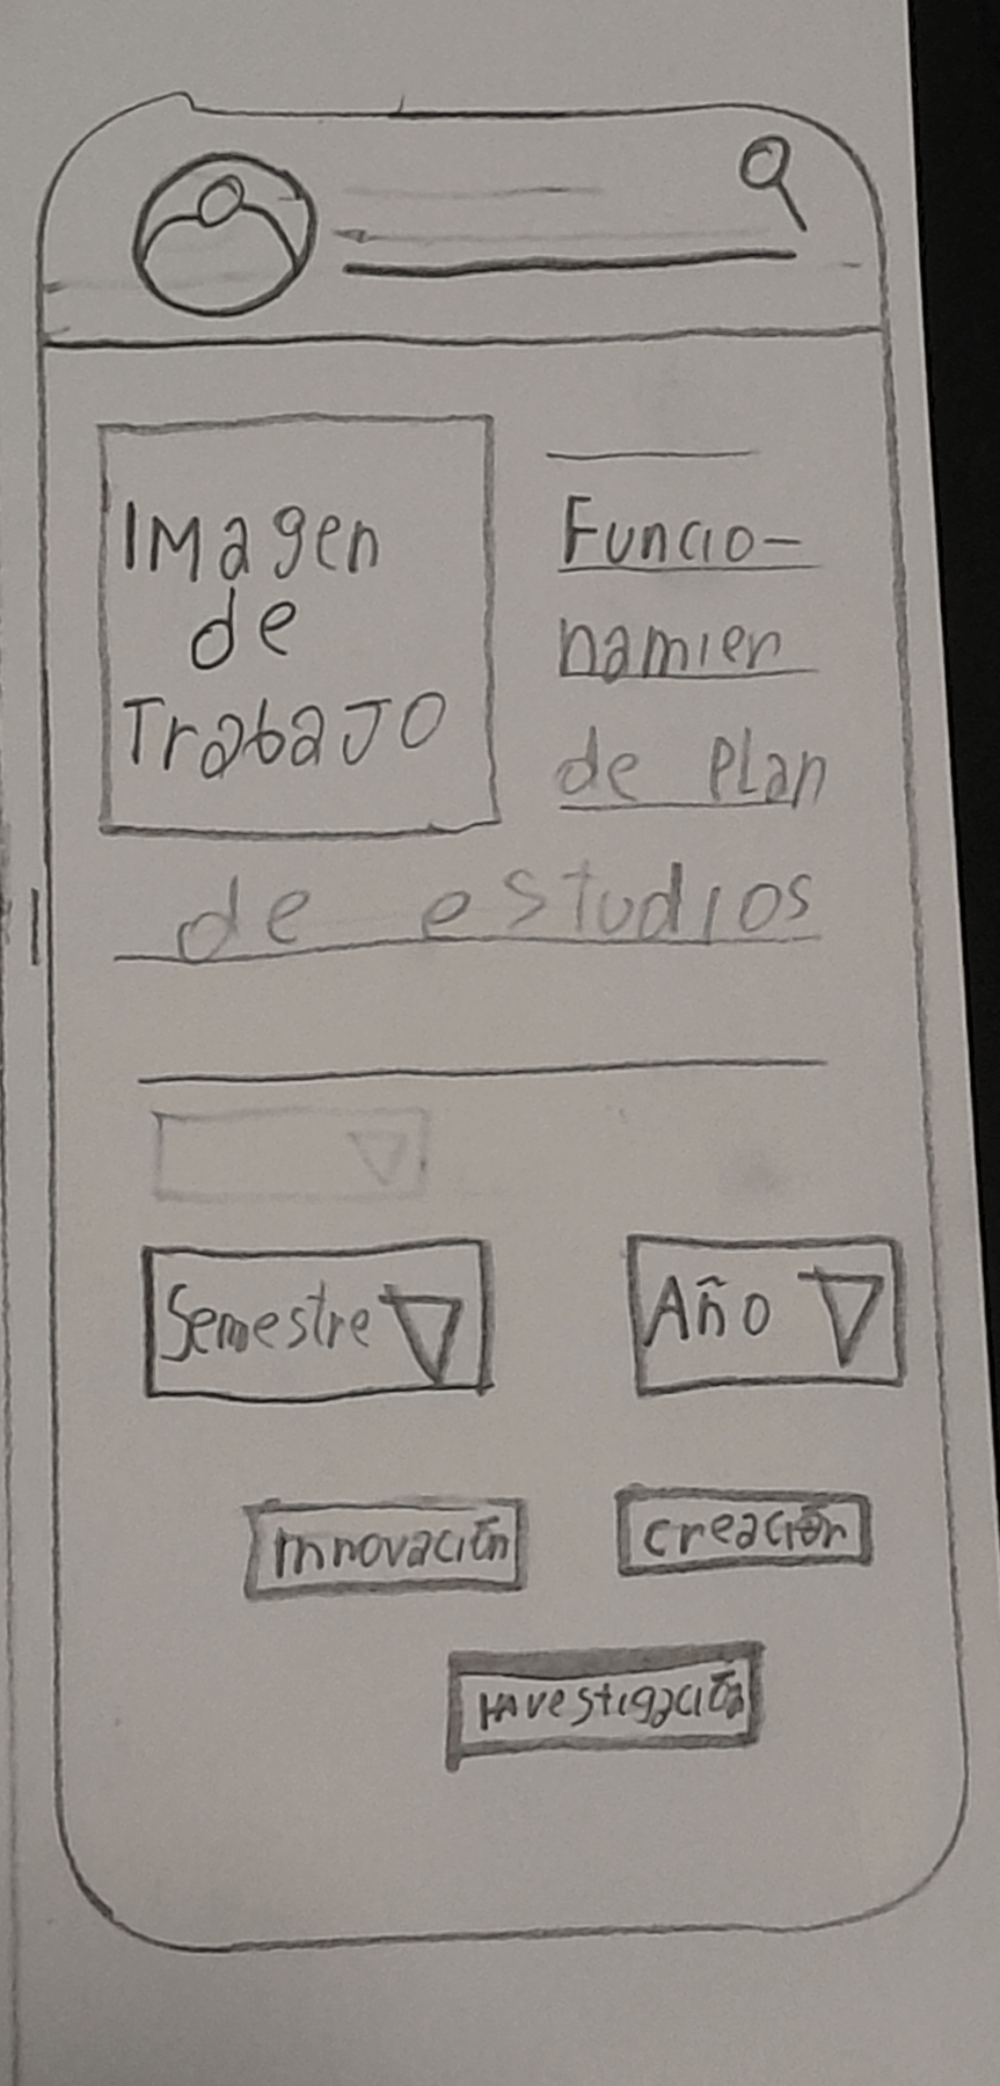 Imagen
de
Trabajo
Funcio-
namien
de plan
de estudios
Semestre
Año
Innovación
Creación
Investigación